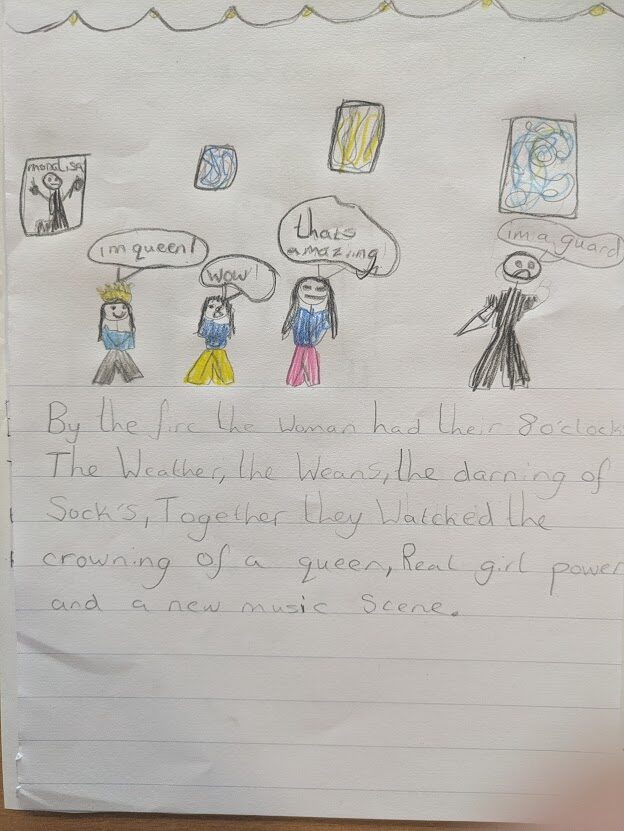 monalisa
im queen!
wow!
thats
amazing
im a guard
By the fire the woman had their 8 o'clock
The Weather, the Weans, the darning of
Sock's, Together they Watched the
crowning of a queen, Real girl power
and a new music Scene.